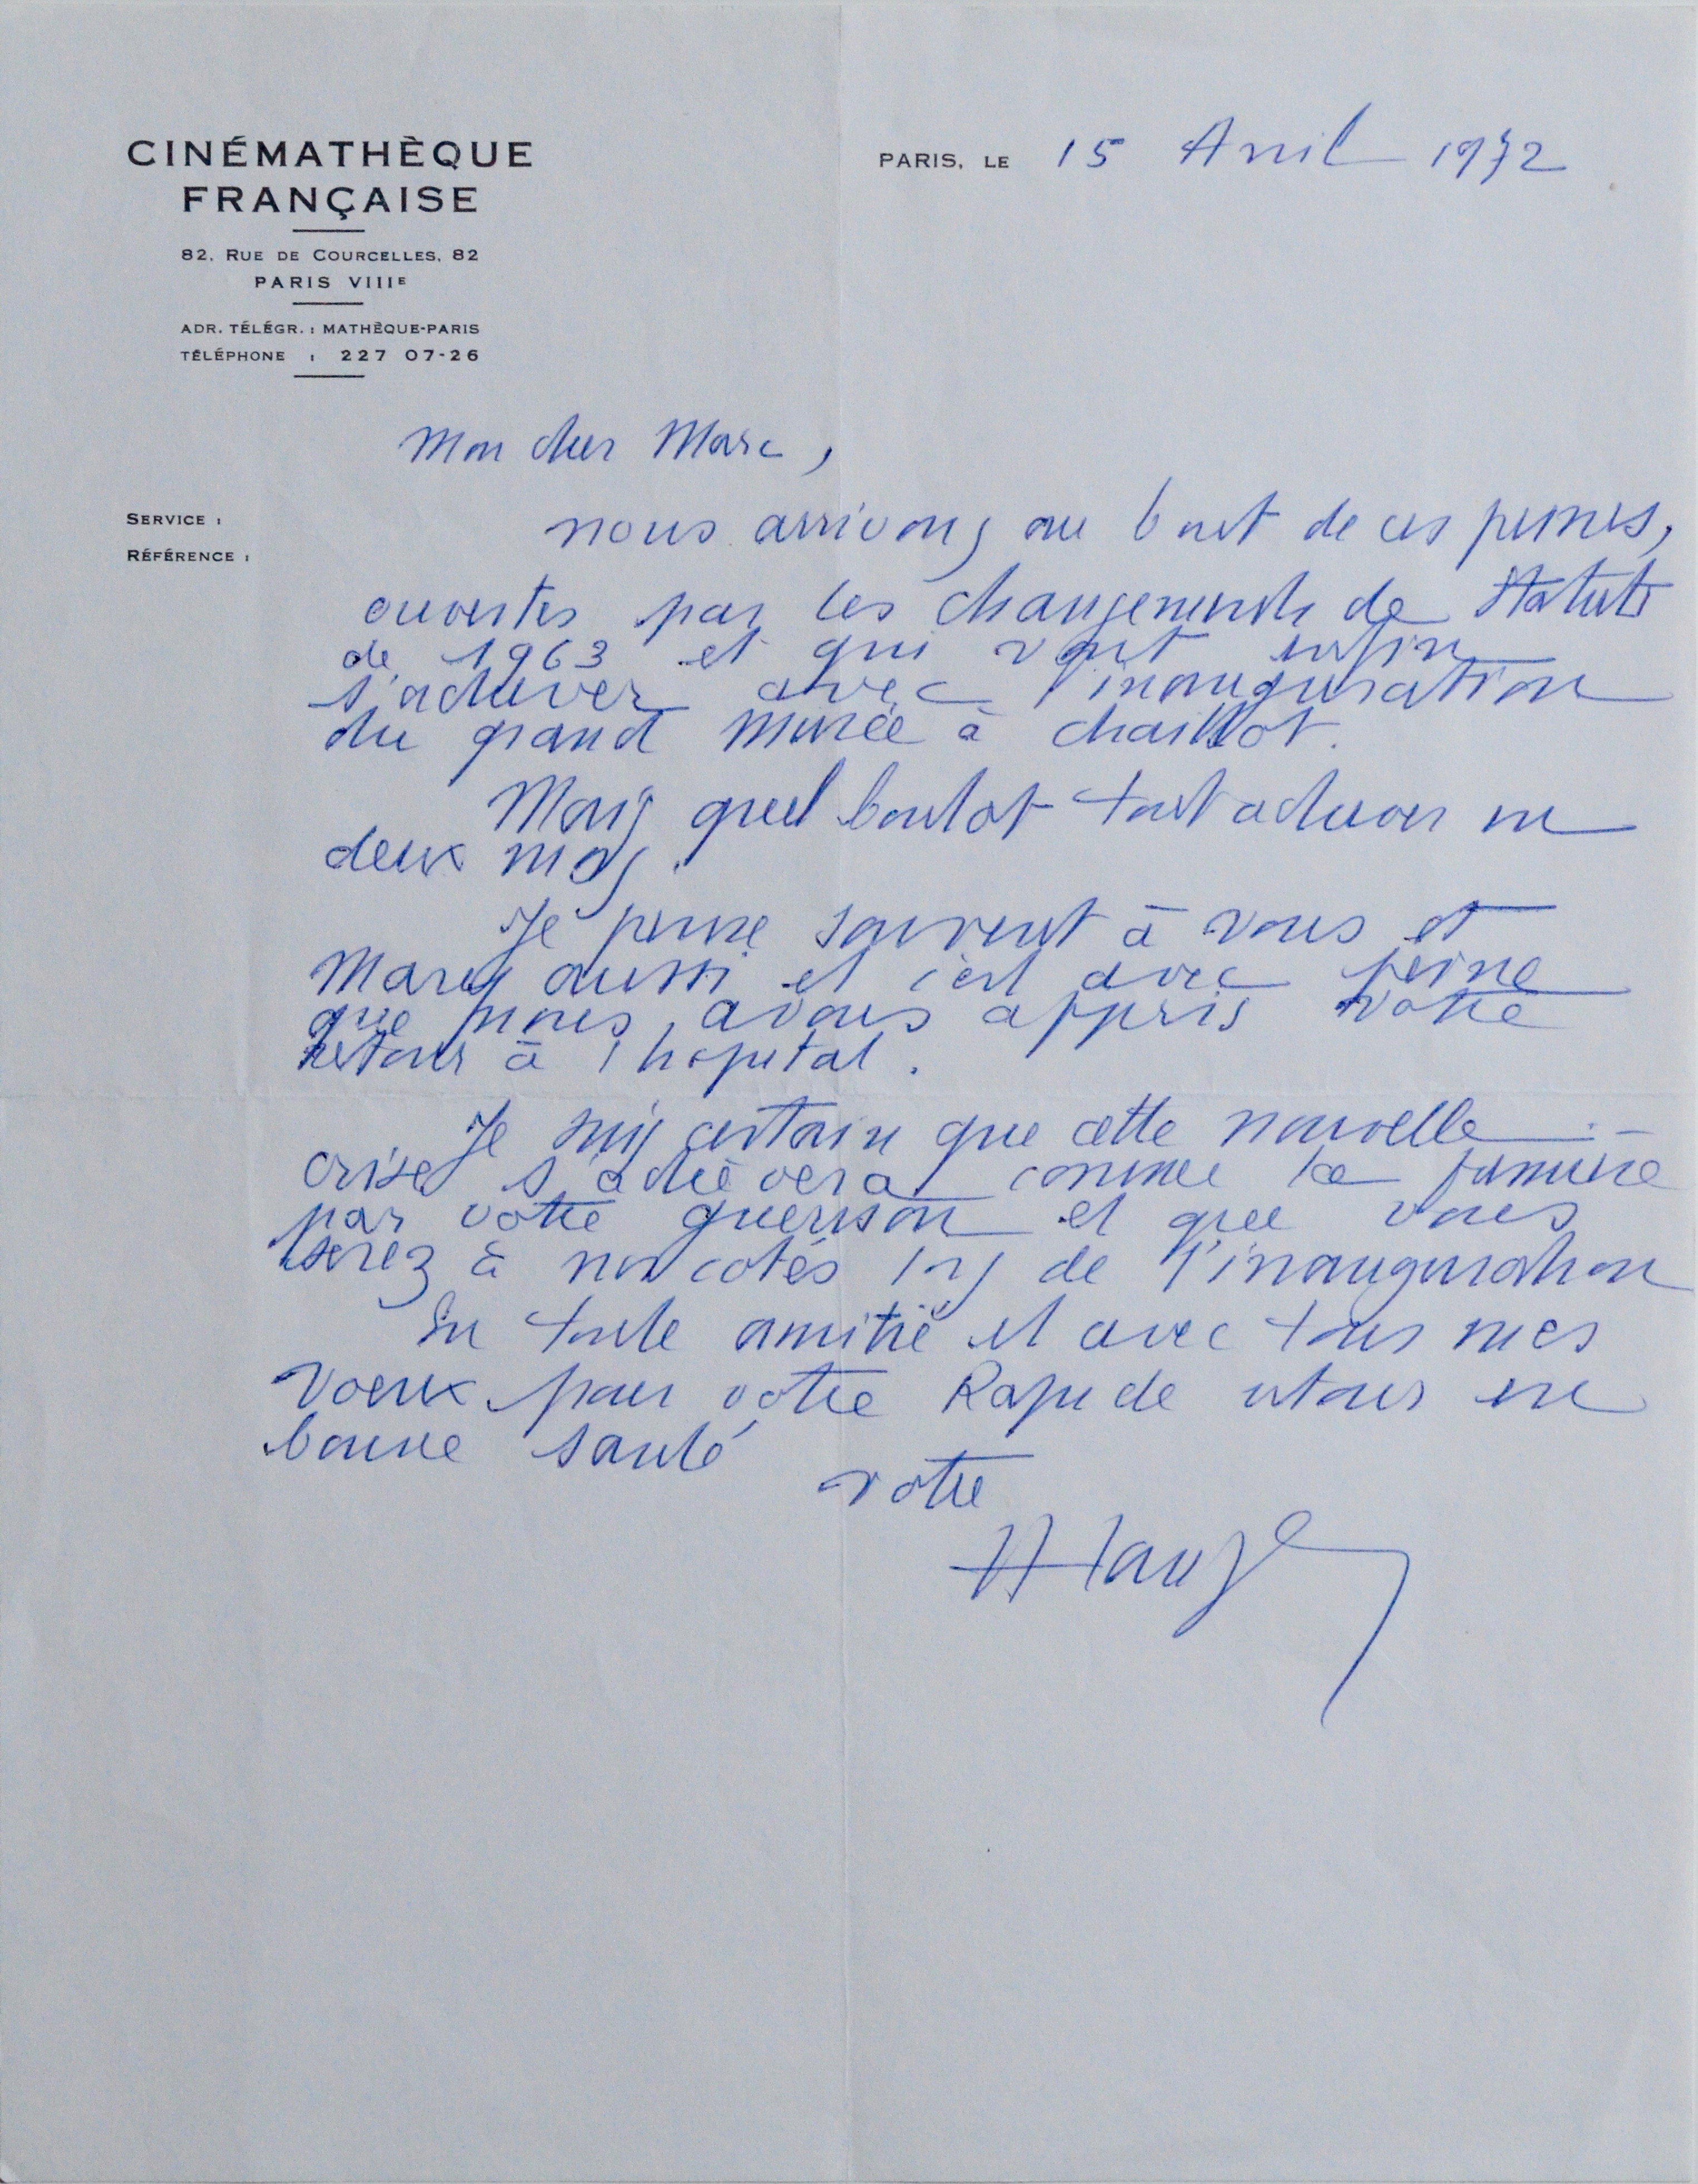 CINÉMATHÈQUE
FRANÇAISE
82, RUE DE COURCELLES, 82
PARIS VIIIE
ADR. TÉLÉGR. : MATHÈQUE-PARIS
TÉLÉPHONE : 227 07-26
PARIS, LE 15 Avril 1972
Mon cher Marc,
SERVICE :
RÉFÉRENCE :
nous arrivons au bout de ces peines,
ouvertes par les changements de Statuts
de 1963 et qui vont enfin
s'achever avec l'inauguration
du grand Musée à chaillot.
Mais quel boulot tout achever en
deux mois.
Je pense souvent à vous et
Mary aussi et c'est avec peine
que nous avons appris votre
retour à l'hopital.
Je suis certain que cette nouvelle
crise s'achèvera comme la première
par votre guerison et que vous
serez à nos cotés lors de l'inauguration
En toute amitié et avec tous mes
Voeux pour votre Rapide retour en
bonne santé
votre